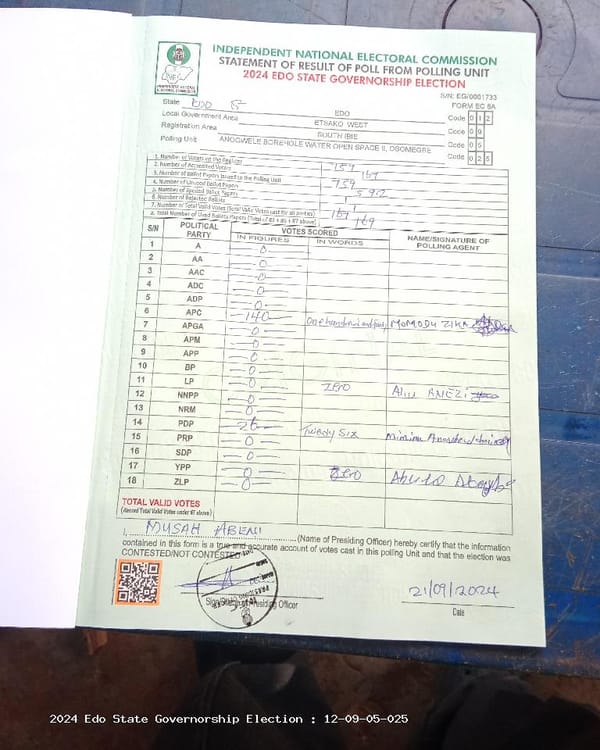 INDEPENDENT NATIONAL ELECTORAL COMMISSION
STATEMENT OF RESULT OF POLL FROM POLLING UNIT
2024 EDO STATE GOVERNORSHIP ELECTION
S/N: EG/0001733
FORM EC 8A
State EDO
Local Government Area ETSAKO WEST Code 0 9
Registration Area SOUTH IBIE Code 0 5
Polling Unit ANOGWELE BOREHOLE WATER OPEN SPACE II, OSOMEGBE Code 0 2 5
1. Number of Voters on the Register 759
2. Number of Accredited Voters 169
3. Number of Ballot Papers Issued to the Polling Unit 759
4. Number of Unused Ballot Papers 590
5. Number of Spoiled Ballot Papers
6. Number of Rejected Ballots
7. Number of Total Valid Votes (Total Valid Votes cast for all parties)
8. Total Number of Used Ballots Papers (Total of #5 + #6 + #7 above) 169
S/N POLITICAL PARTY VOTES SCORED NAME/SIGNATURE OF POLLING AGENT
IN FIGURES IN WORDS
1 A 0
2 AA 0
3 AAC 0
4 ADC 0
5 ADP 0
6 APC 140 One hundred and forty MOMODU ZIKA
7 APGA 0
8 APM 0
9 APP 0
10 BP 0
11 LP 0 Zero
12 NNPP 0
13 NRM 0
14 PDP 26 Twenty Six
15 PRP 0
16 SDP 0
17 YPP 0 Zero
18 ZLP 0
TOTAL VALID VOTES
(Record Total Valid Votes under #7 above)
I, MUSAH (Name of Presiding Officer) hereby certify that the information
contained in this form is a true and accurate account of votes cast in this polling Unit and that the election was
CONTESTED/NOT CONTESTED
21/09/2024
Presiding Officer Date
2024 Edo State Governorship Election : 12-09-05-025